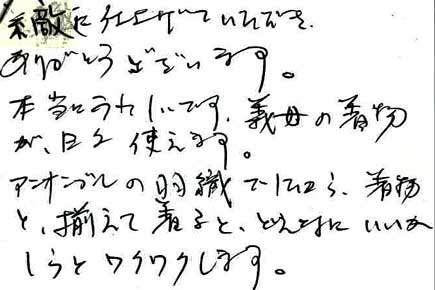 素敵に仕上げていただき、
ありがとうございます。
本当にうれしいです。義母の着物
が、日々使えます。
アンサンブルの羽織でしたから、着物
と、揃えて着ると、どんなにいいか
しらとワクワクします。